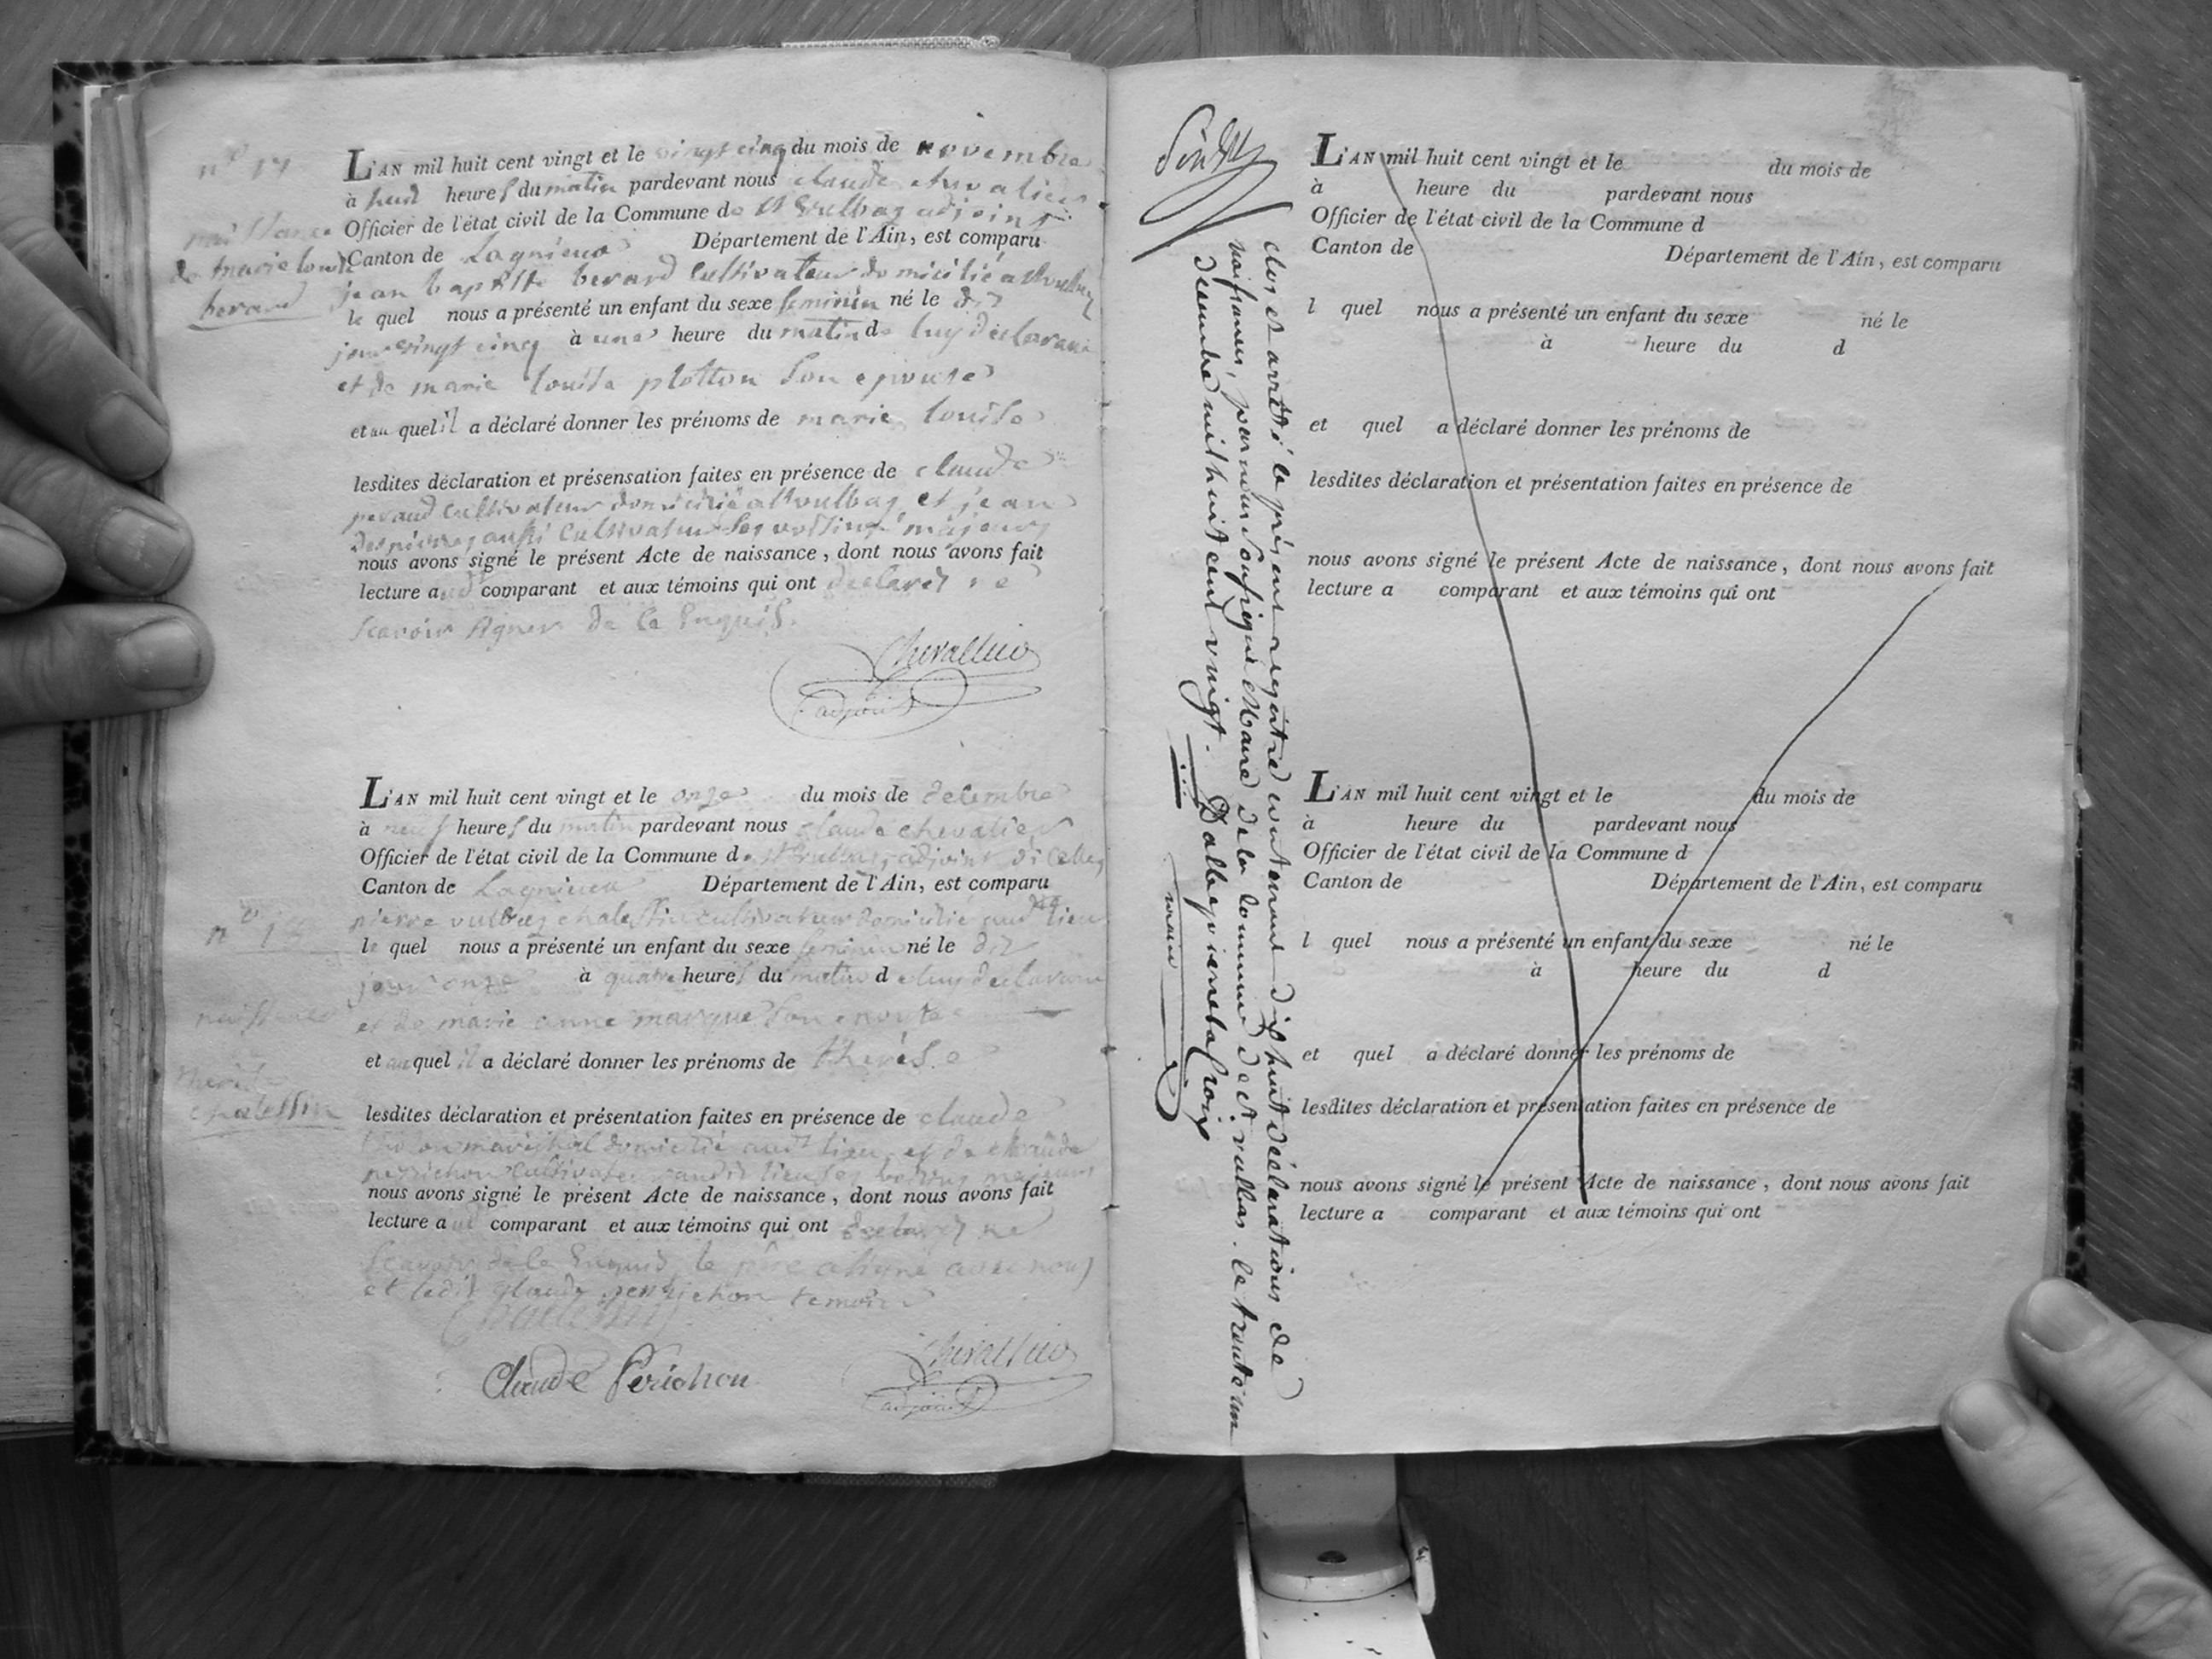 n° 17
naissance
de marie louise
berard
L'AN mil huit cent vingt et le vingt cinq du mois de novembre
à huit heures du matin pardevant nous claude chevalier
Officier de l'état civil de la Commune de St Vulbas adjoint
Canton de Lagnieu Département de l'Ain, est comparu
jean baptiste berard cultivateur domicilié a St vulbas
le quel nous a présenté un enfant du sexe feminin né le dit
jour vingt cinq à une heure du matin de luy déclarant
et de marie louise plotton son epouse
et au quel il a déclaré donner les prénoms de marie louise
lesdites déclaration et présensation faites en présence de claude
peraud cultivateur domicilié a St vulbas et jean
despierres aussi cultivateur ses voisins majeurs
nous avons signé le présent Acte de naissance, dont nous avons fait
lecture aud comparant et aux témoins qui ont declarés ne
scavoir signer de ce enquis.
Chevallier
adjoint
n° 18
naissance
therese
chalessin
L'AN mil huit cent vingt et le onze du mois de decembre
à neuf heures du matin pardevant nous claude chevalier
Officier de l'état civil de la Commune de St vulbas adjoint
Canton de Lagnieu Département de l'Ain, est comparu
pierre vulbas chalessin cultivateur domicilié aud lieu
le quel nous a présenté un enfant du sexe feminin né le dit
jour onze à quatre heures du matin de luy declarant
et de marie anne margue son epouse
et au quel il a déclaré donner les prénoms de therese
lesdites déclaration et présentation faites en présence de claude
marechal domicilié audt lieu et de claude
perrichon cultivateur audit lieu ses voisins majeurs
nous avons signé le présent Acte de naissance, dont nous avons fait
lecture aud comparant et aux témoins qui ont declarés ne
scavoir de ce enquis le père a signé avec nous
et ledit claude perrichon temoin
Chalessin
Claude Perichon
Chevallier
adjoint
clos et arretté le présent registre contenant dix huit déclarations de
naissances, par nous soussigné Maire de la commune de St. vulbas. le trente un
decembre mil huit cent vingt. Dallepierre Lacroix
maire
L'AN mil huit cent vingt et le du mois de
à heure du pardevant nous
Officier de l'état civil de la Commune d
Canton de Département de l'Ain, est comparu
l quel nous a présenté un enfant du sexe né le
à heure du d
et quel a déclaré donner les prénoms de
lesdites déclaration et présentation faites en présence de
nous avons signé le présent Acte de naissance, dont nous avons fait
lecture a comparant et aux témoins qui ont
L'AN mil huit cent vingt et le du mois de
à heure du pardevant nous
Officier de l'état civil de la Commune d
Canton de Département de l'Ain, est comparu
l quel nous a présenté un enfant du sexe né le
à heure du d
et quel a déclaré donner les prénoms de
lesdites déclaration et présentation faites en présence de
nous avons signé le présent Acte de naissance, dont nous avons fait
lecture a comparant et aux témoins qui ont